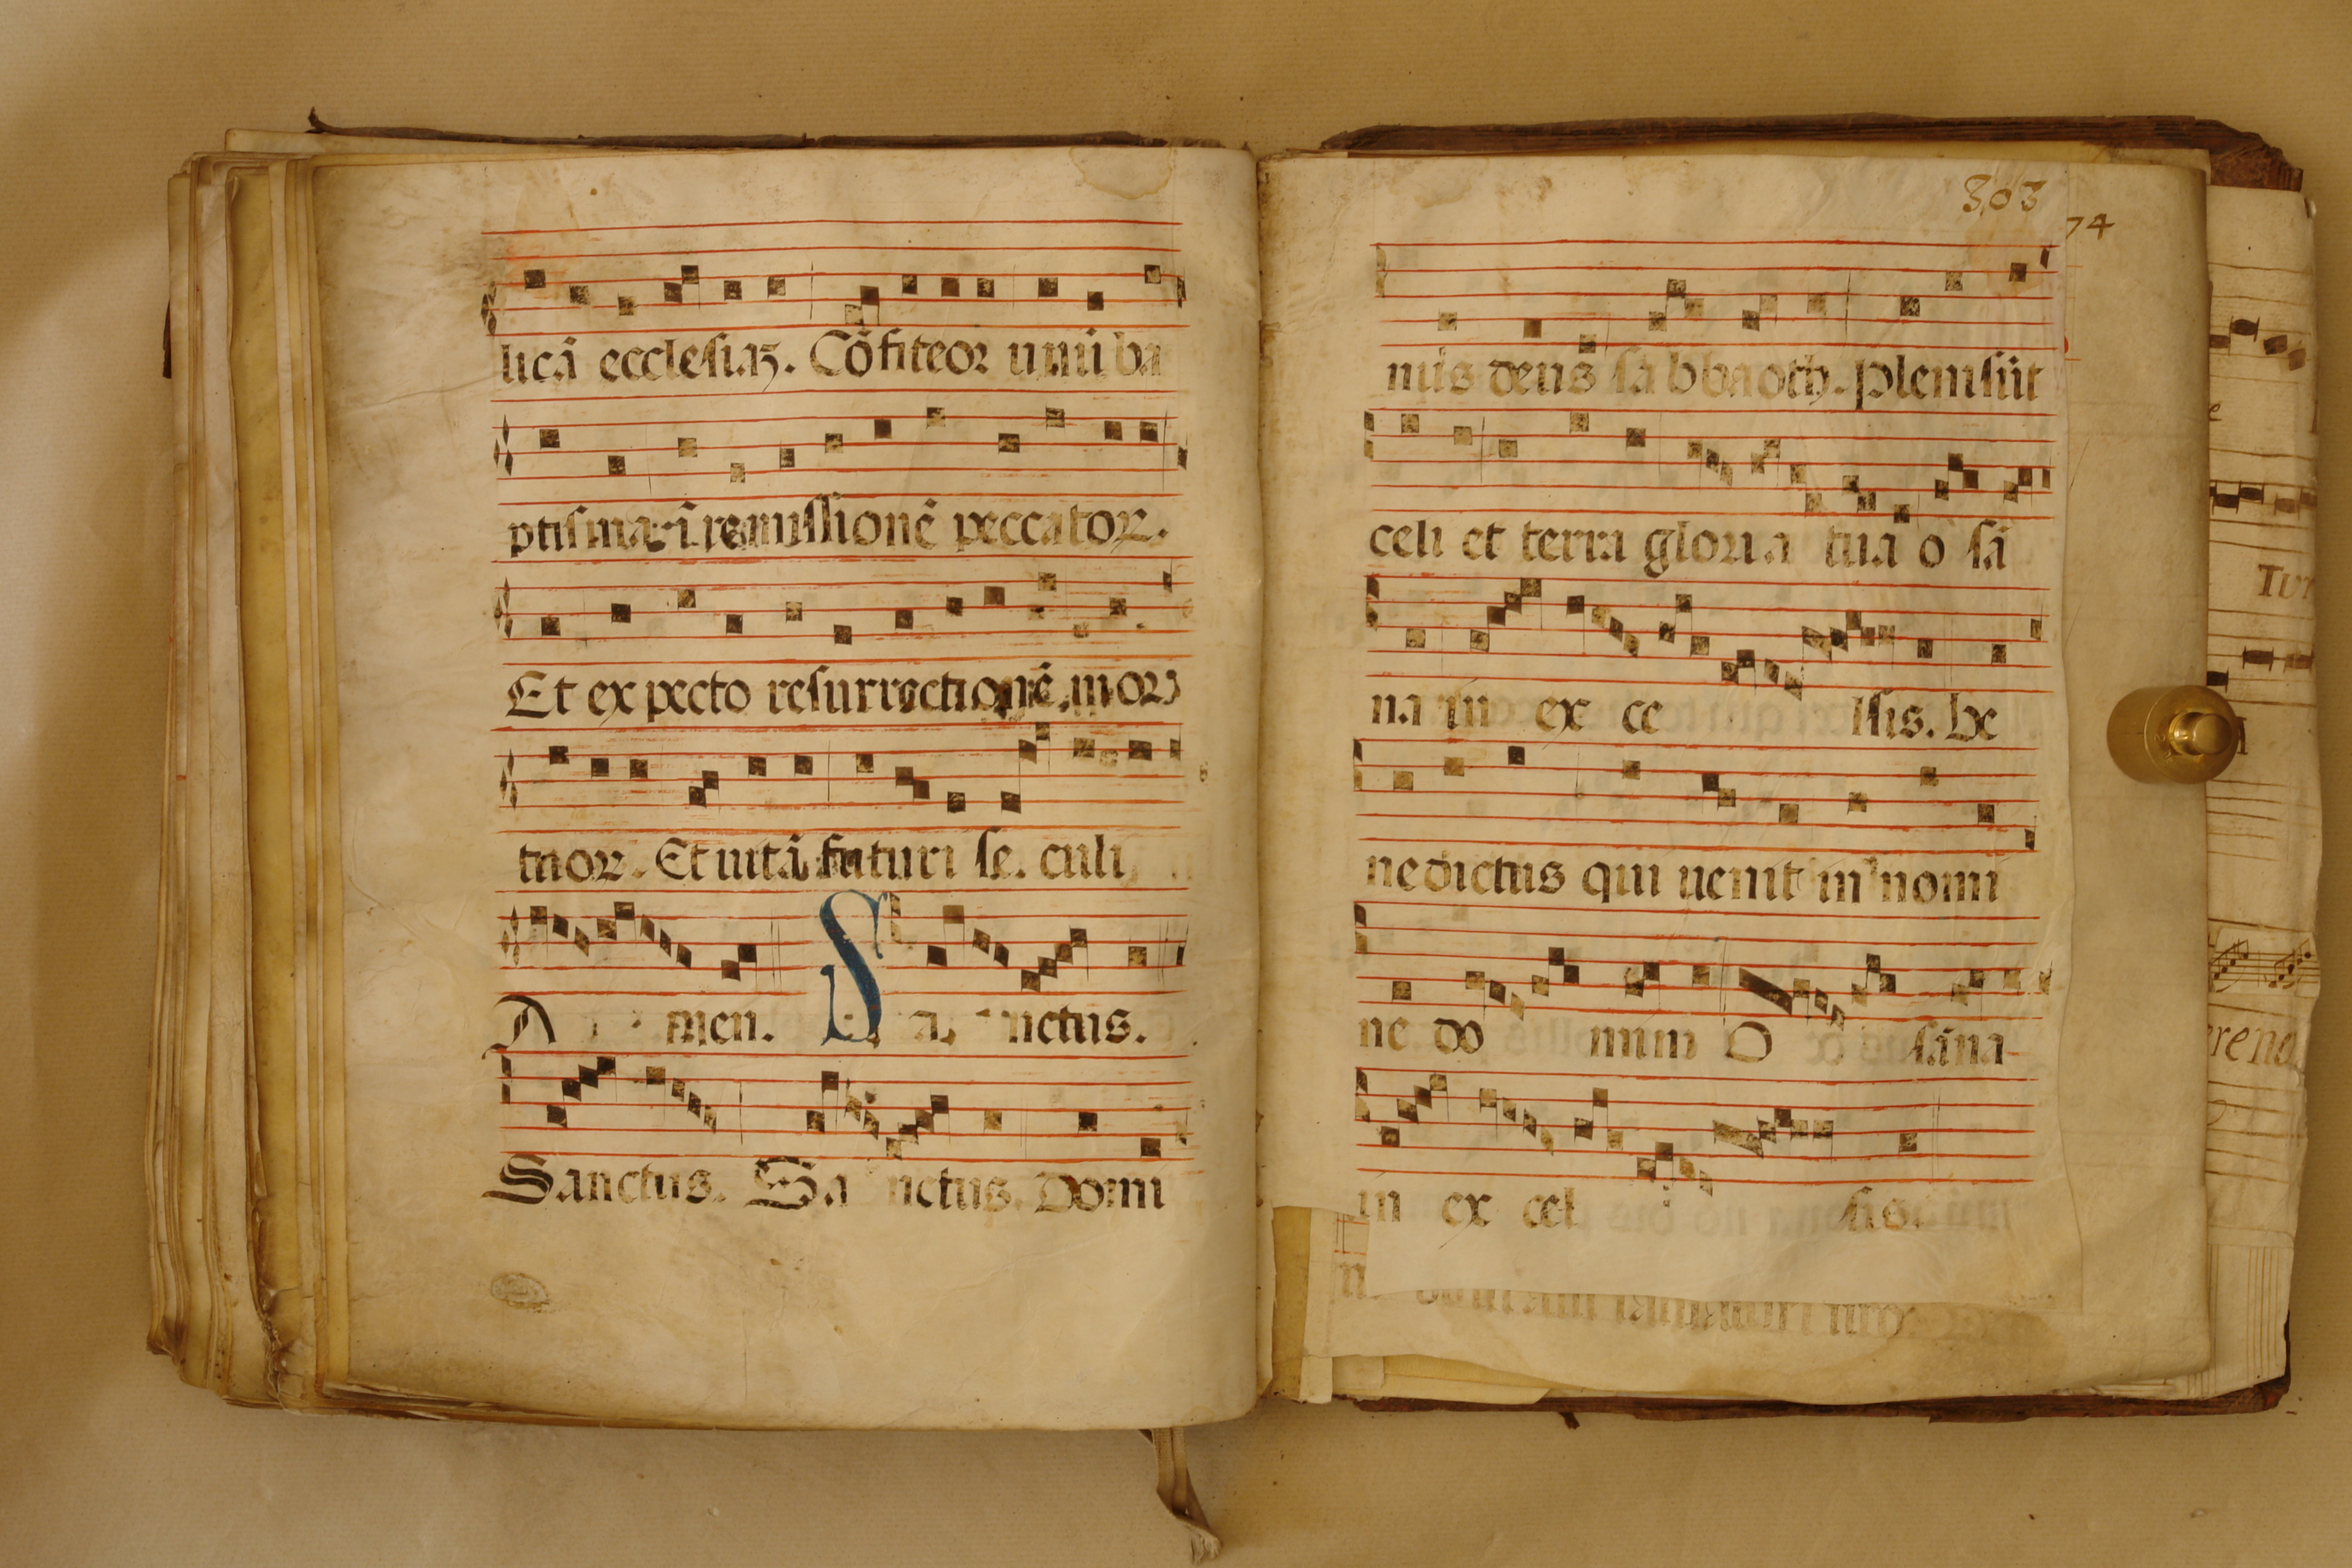 licā ecclesiaꝫ. Cōfiteor unū ba
ptisma ī remissionē peccatoꝝ.
Et expecto resurrectionē mor
tuoꝝ. Et uitā futuri se. culi
A men. Sa nctus.
Sanctus. Sa nctus. Domi
303
74
nus deus sabbaoth. Pleni sūt
celi et terra gloria tua o sā
na in ex ce lsis. be
nedictus qui uenit in nomi
ne do mini O sāna
in ex cel sis.